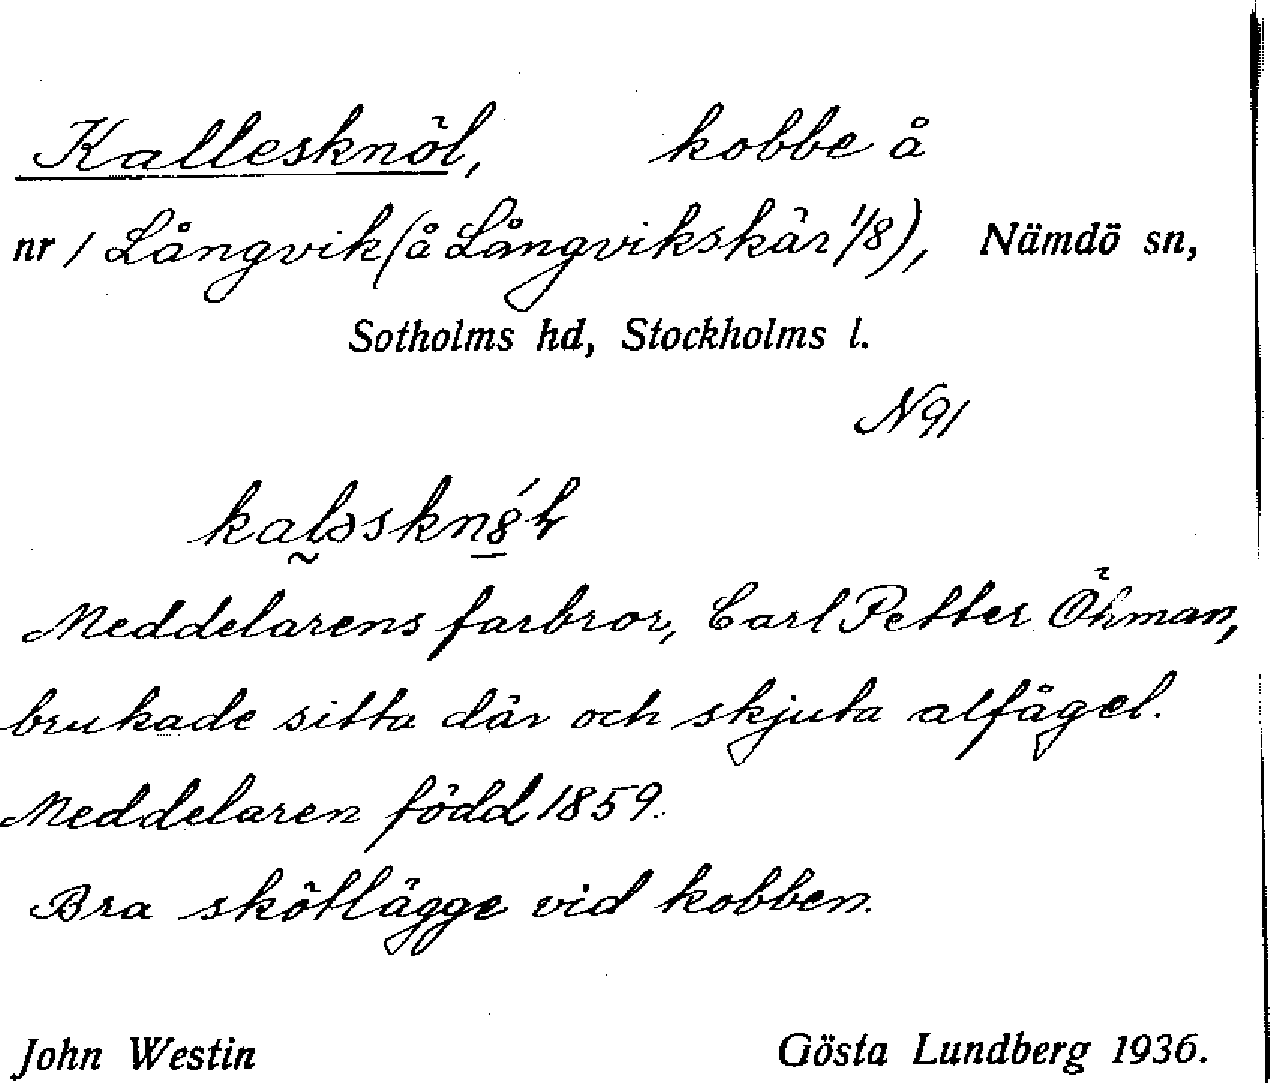 Kallesknöl, kobbe å
nr 1 Långvik (å Långvikskär 1/8), Nämdö sn,
Sotholms hd, Stockholms l.
N91
Meddelarens farbror, Carl Petter Öhman,
brukade sitta där och skjuta alfågel.
Meddelaren född 1859.
Bra skötlägge vid kobben.
John Westin Gösta Lundberg 1936.